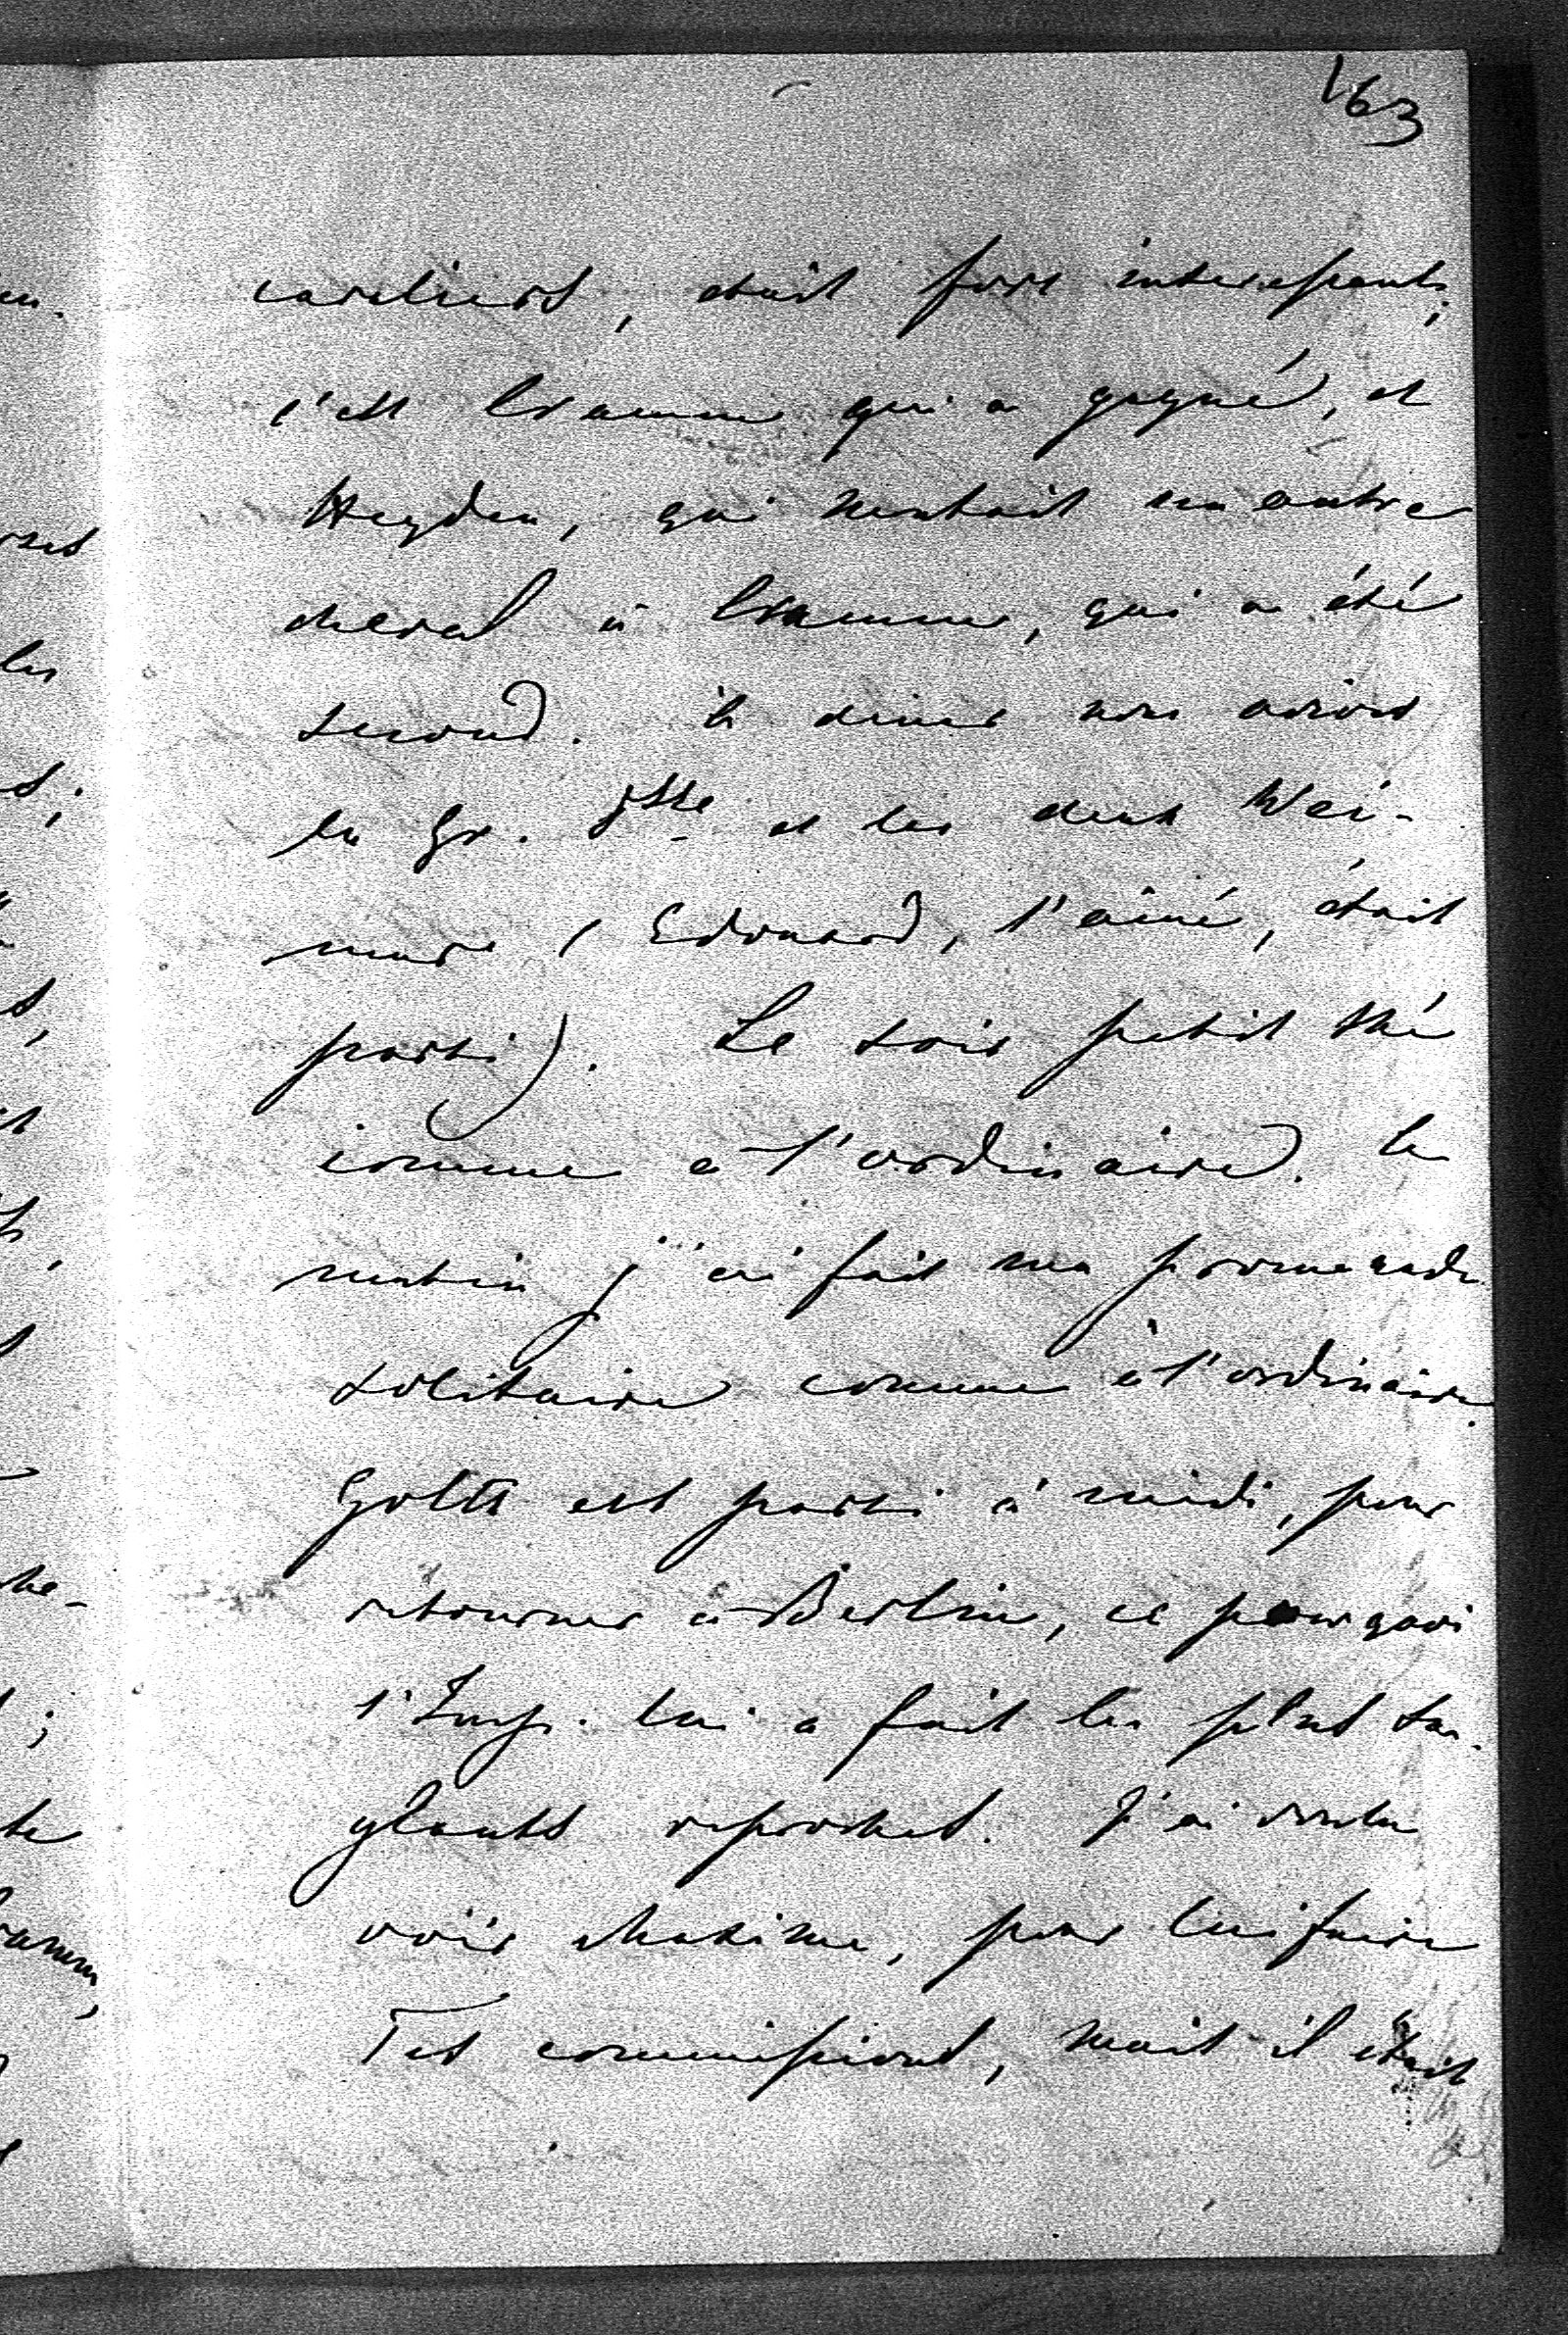 163
cavaliers, était fort interessant;
c'est Cramm qui a gagné, et
Heyden, qui montait un autre
cheval à Cramm, qui a été
second. à diner nous avions
la Gr. Dsse et les deux Wei-
mar (Edouard, l'ainé, était
parti). Le soir petit thé
comme à l'ordinaire. Le
matin j'ai fait ma promenade
solitaire comme à l'ordinaire.
Goltz est parti à midi, pour
retourner à Berlin, ce pourquoi
l'Imp. lui a fait les plus san-
glants reproches. J'ai voulu
voir Maxime, pour lui faire
Tes commissions, mais il était